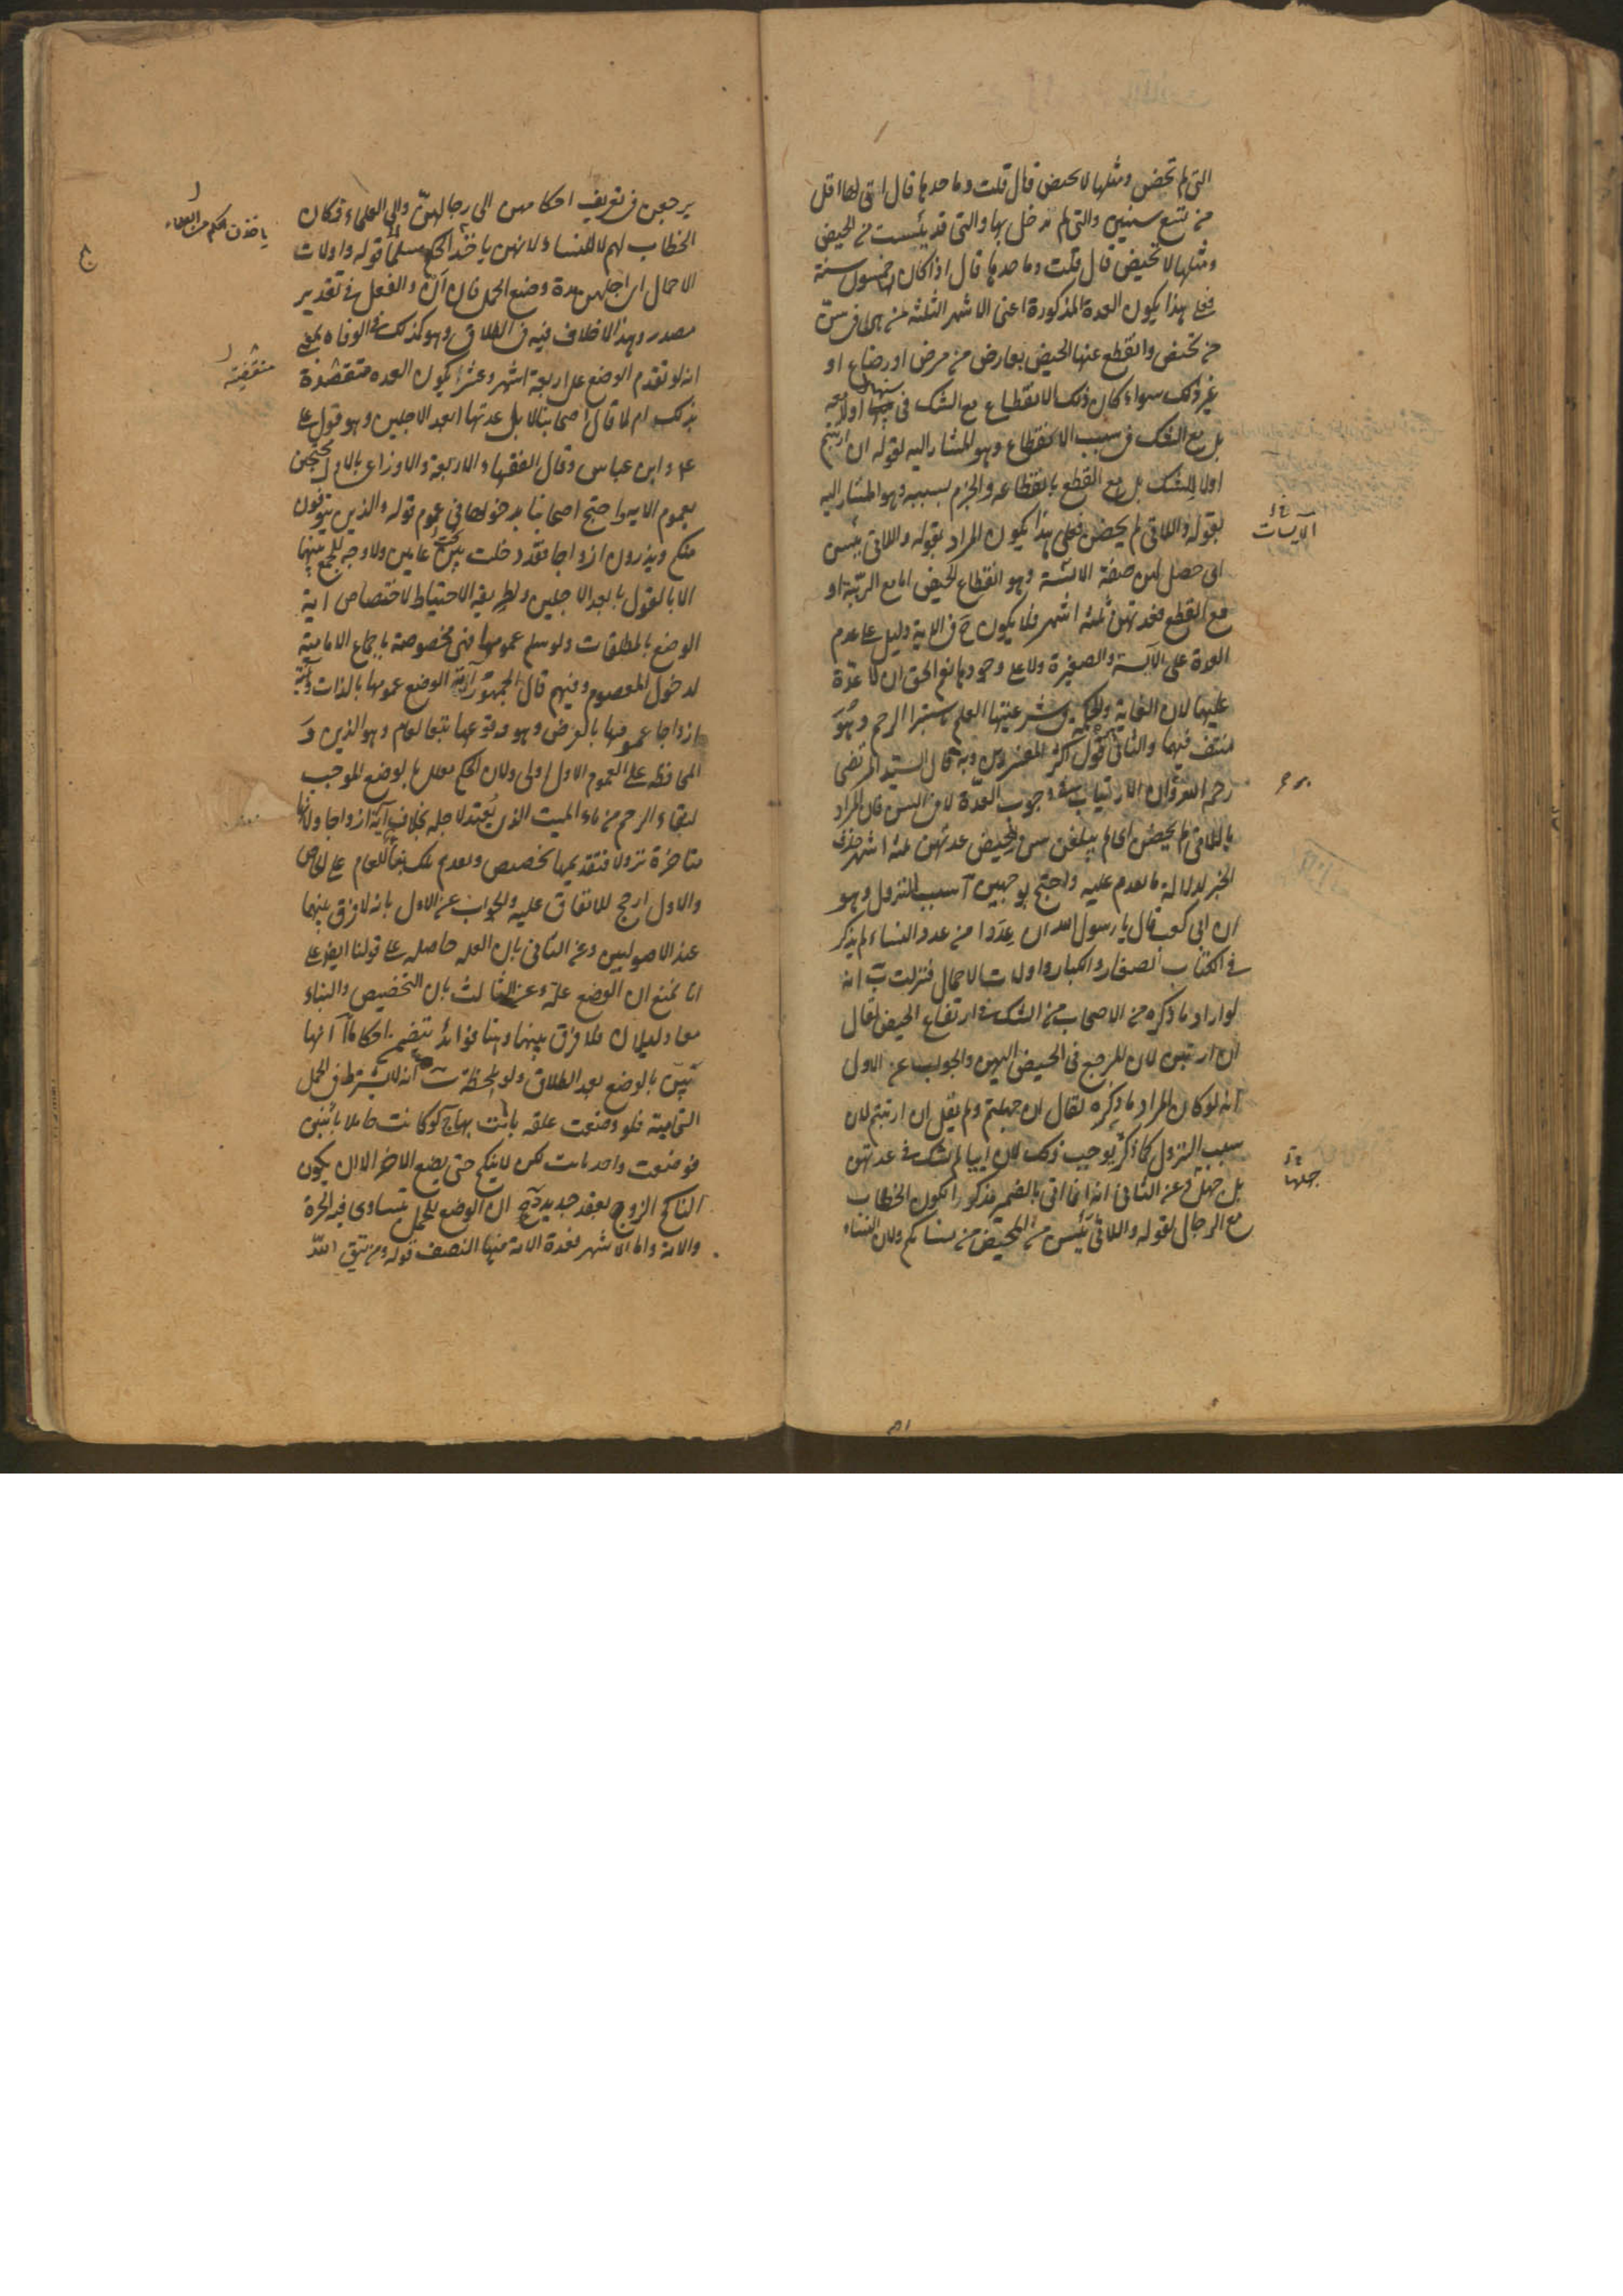 التى لم تحض ومثلها لا تحيض قال قلت وما حدها قال اذا اتى لها اقل
من تسع سنين والتى لم يدخل بها والتى قد يئست من الحيض
ومثلها لا تحيض قال قلت وما حدها قال اذا كان لها خمسون سنة
فعلى هذا يكون العدة المذكورة اعنى الاشهر الثلثة لمن هى فى سن
من تحيض وانقطع عنها الحيض بعارض من مرض او رضاع او
غير ذلك سواء كان ذلك الانقطاع مع الشك فى سنها اولا معه
بل مع الشك فى سبب الانقطاع وهو المشار اليه بقوله ان ارتبتم
اولا للشك بل مع القطع بانقطاعه والجزم بسببه وهو المشار اليه
بقوله واللائى لم يحضن فعلى هذا يكون المراد بقوله واللائى يئسن
اى حصل لهن صفة الائسة وهو انقطاع الحيض اما مع الريبة او
مع القطع فعدتهن ثلثة اشهر فلا يكون ح فى الاية دليل على عدم
العدة على الآيسة والصغيرة ولا على وجودها نعم الحق ان لا عدة
عليهما لان الغاية والحكمة فى شرعيتها العلم باستبراء الرحم وهو
منتف فيهما والثانى قول اكثر المفسرين وبه قال السيد المرتضى
رحمه الله وان الارتياب فى وجوب العدة لا فى السن قال المراد
باللائى لم يحضن اى لم يبلغن سن الحيض عدتهن ثلثة اشهر حذف
الخبر لدلالة ما تقدم عليه واحتج بوجهين آ سبب النزول وهو
ان ابى كعب قال يا رسول الله ان عددا من عدد النساء لم يذكر
فى الكتاب الصغار والكبار واولات الاحمال فنزلت ب انه
لو اراد ما ذكره من الاصحاب من الشك فى ارتفاع الحيض لقال
ان ارتبن لان المرجع فى الحيض اليهن والجواب عن الاول
انه لو كان المراد ما ذكره لقال ان جهلتم ولم يقل ان ارتبتم لان
سبب النزول كما ذكر يوجب ذلك لان ابيا لم يشك فى عدتهن
بل جهل وعن الثانى انه انما اتى بالضمير مذكرا لكون الخطاب
مع الرجال لقوله واللائى يئسن من المحيض من نسائكم ولان النساء
الآيسات
جهلها
يرجعن فى تعريف احكامهن الى رجالهن والى العلماء فكان
الخطاب لهم لا للنساء لانهن ياخذ الحكم مسلما قوله واولات
الاحمال اى اجلهن مدة وضع الحمل فان ان والفعل فى تقدير
مصدر وهذا لا خلاف فيه فى الطلاق وهو كذلك فى الوفاه بمعنى
انه لو تقدم الوضع على اربعة اشهر وعشرا يكون العده منقضية
بذلك ام لا قال اصحابنا لا بل عدتها ابعد الاجلين وهو قول على
ع وابن عباس وقال الفقهاء الاربعة والاوزاعى بالاول محتجين
بعموم الاية واحتج اصحابنا بدخولها فى عموم قوله والذين يتوفون
منكم ويذرون ازواجا فقد دخلت تحت عامين ولا وجه للجمع بينهما
الا بالقول بابعد الاجلين ولطريقة الاحتياط لاختصاص اية
الوضع بالمطلقات ولو سلم عمومها فهى مخصوصة باجماع الامامية
لدخول المعصوم فيهم قال الجمهور آية الوضع عمومها بالذات وآية
ازواجا عمومها بالعرض وهو وقوعها تبعا لعام وهو الذين و
المحافظة على العموم الاول اولى ولان الحكم معلل بالوضع الموجب
لنقاء الرحم من ماء الميت الذى يعتد لاجله بخلاف آية ازواجا ولانها
متاخرة نزولا فتقديمها تخصيص وتقديم تلك بناء للعام على الخاص
والاول ارجح للاتفاق عليه والجواب عن الاول بانه لا فرق بينهما
عند الاصوليين وعن الثانى بان العلة حاصلة على قولنا ايضا على
انا نمنع ان الوضع علة وعن الثالث بان التخصيص والبناء
معا دليلان فلا فرق بينهما وهنا فوائد تتضمن احكاما آ انها
تبين بالوضع بعد الطلاق ولو بلحظة ب انه لا يشترط فى الحمل
التمامية فلو وضعت علقه بانت بها ج لو كانت حاملا باثنين
فوضعت واحد بانت لكن لا ينكح حتى يضع الاخر الا ان يكون
الناكح الزوج بعقد جديد د ان الوضع للحمل يتساوى فيه الحرة
والامة واما الاشهر فعدة الامة منها النصف قوله ومن يتق الله
ياخذن الحكم من العلماء
منقضية